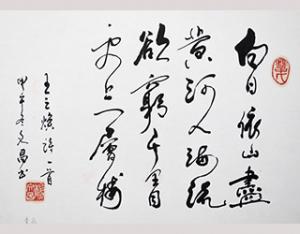 白日依山盡
黄河入海流
欲窮千里目
更上一層楼
王之煥詩一首
甲午冬